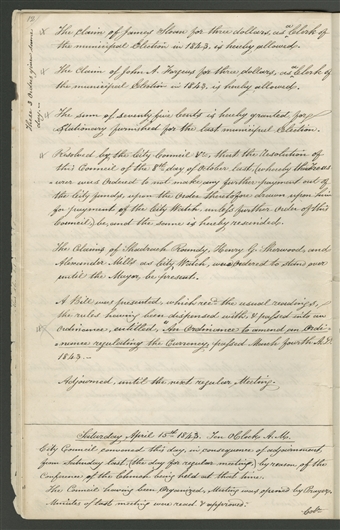 The claim of James Sloan for three dollars, as a Clerk of
the municipal Election in 1843, is hereby allowed.
The Claim of John A. Forgeus for three dollars, as a Clerk of
the municipal Election in 1843, is hereby allowed.
These 3 Orders given same
day.
The sum of seventy five cents is hereby granted, for
Stationary furnished for the last municipal Election.
Resolved by the City Council &c, that the resolution of
this Council of the 8th day of October last, whereby the Treas
urer was Ordered to not make any further payment out of
the City funds, upon the Order theretofore drawn upon him
for payment of the City Watch, unless further Order of this
Council; be, and the same is hereby rescinded.
The Claims of Shadrach Roundy, Henry G. Sherwood, and
Alexander Mills as City Watch, was Ordered to stand over
until the Mayor be present.
A Bill was presented, which recd. the usual readings,
the rules having been dispensed with, & passed into an
Ordinance, entitled, "An Ordinance to amend an Ordi-
-nance regulating the Currency, passed March fourth A.D.
1843.-
Adjourned, until the next regular Meeting.
Saturday April 15th 1843. Ten O'Clock A.M.
City Council convened this day, in consequence of adjournment,
from Saturday last, (the day for regular meeting,) by reason of the
Conference of the Church being held at that time.
The Council having been Organized, Meeting was opened by Prayer,
Minutes of last meeting were read & approved: